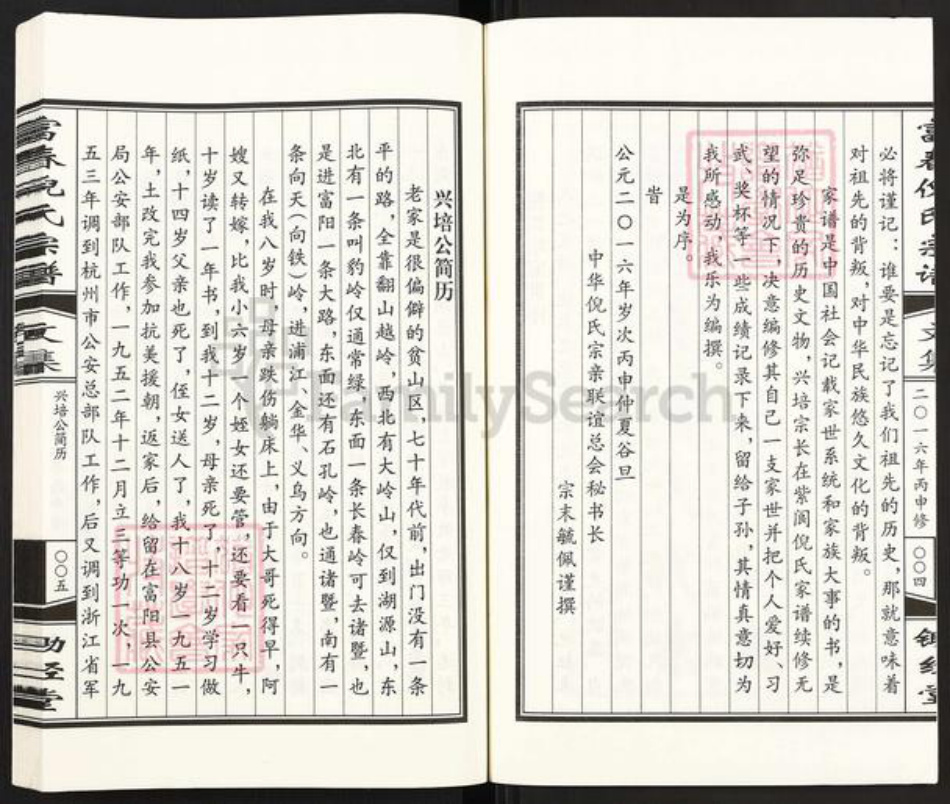 必将谨记：谁要是忘记了我们祖先的历史，那就意味着
对祖先的背叛，对中华民族悠久文化的背叛。
家谱是中国社会记载家世系统和家族大事的书，是
弥足珍贵的历史文物，兴培宗长在紫阆倪氏家谱续修无
望的情况下，决意编修其自己一支家世并把个人爱好、习
武、奖杯等一些成绩记录下来，留给子孙，其情真意切为
我所感动，我乐为编撰。
是为序。
旹
公元二〇一六年岁次丙申仲夏谷旦
中华倪氏宗亲联谊总会秘书长
宗末毓佩谨撰
富春倪氏宗谱
文集
二〇一六年丙申修
〇〇四
兴培公简历
老家是很偏僻的贫山区，七十年代前，出门没有一条
平的路，全靠翻山越岭，西北有大岭山，仅到湖源山，东
北有一条叫豹岭仅通常绿，东面一条长春岭可去诸暨，也
是进富阳一条大路，东面还有石孔岭，也通诸暨，南有一
条向天（向铁）岭，进浦江、金华、义乌方向。
在我八岁时，母亲跌伤躺床上，由于大哥死得早，阿
嫂又转嫁，比我小六岁一个姪女还要管，还要看一只牛，
十岁读了一年书，到我十二岁，母亲死了，十二岁学习做
纸，十四岁父亲也死了，侄女送人了，我十八岁一九五一
年，土改完我参加抗美援朝，返家后，给留在富阳县公安
局公安部队工作，一九五二年十二月立三等功一次，一九
五三年调到杭州市公安总部队工作，后又调到浙江省军
富春倪氏宗谱
文集
兴培公简历
〇〇五
FamilySearch